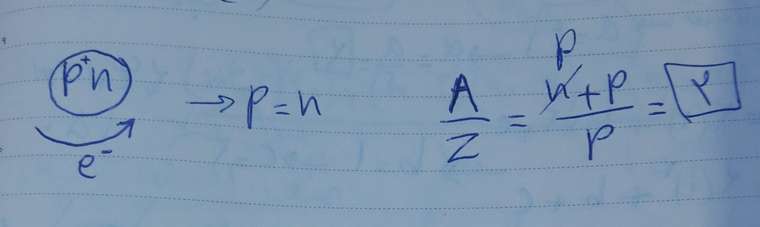 p⁺n
e⁻
→ p = n
A/Z = (n+p)/p = ۲
p